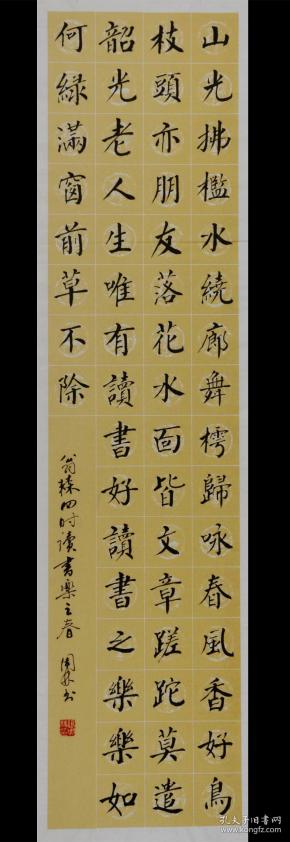 山光拂檻水繞廊舞樗歸咏春風香好鳥
枝頭亦朋友落花水面皆文章蹉跎莫遣
韶光老人生唯有讀書好讀書之樂樂如
何緑滿窗前草不除
翁森四时读书樂之春
孔夫子旧书网